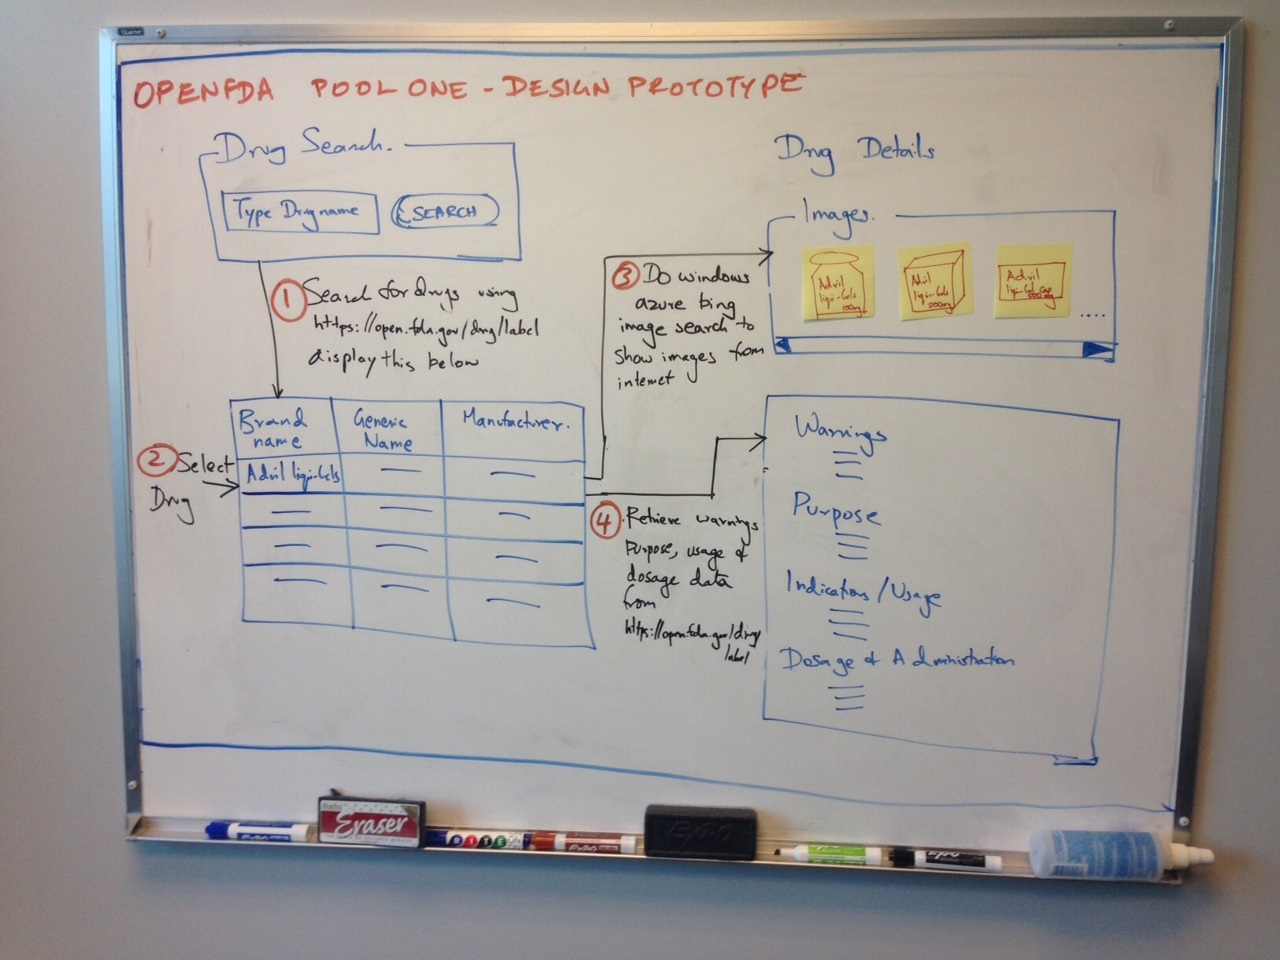 Quartet
OPENFDA POOL ONE - DESIGN PROTOTYPE
Drug Search.
Type Drug name
SEARCH
1 Search for drugs using
https://open.fda.gov/drug/label
display this below
Brand name
Generic Name
Manufacturer.
2 Select Drug
Advil liqui-Gels
3 Do windows
azure bing
image search to
show images from
internet
4 Retrieve warnings
Purpose, usage &
dosage data
from
https://open.fda.gov/drug/
label
Drug Details
Images.
Advil
liqui-Gels
100mg
Advil
liqui-Gels
200mg
Advil
liqui-Gel Cap
....
Warnings
Purpose
Indications/Usage
Dosage & Administration
Eraser
RITE
EXPO
EXPO
EXPO